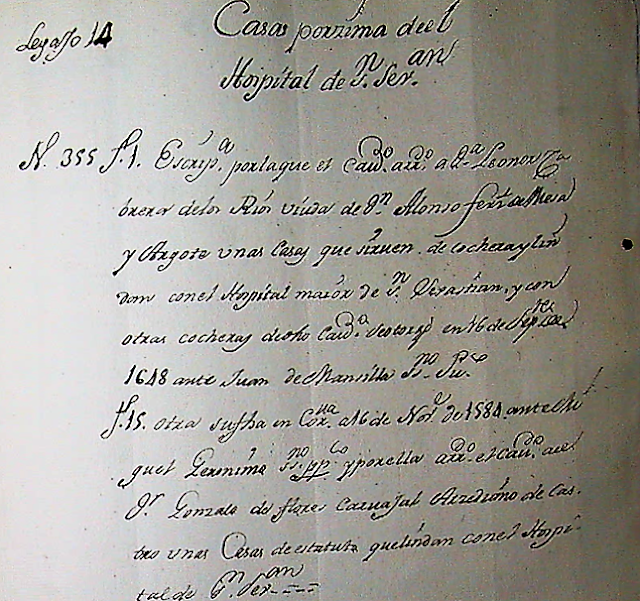 Legajo 14
Casas porxima de el
Hospital de Sn. Seran
N. 355 f. 1. Escrip.a por la que el Cavdo. arro. a Da. Leonor Ca
brera de los Rios viuda de Dn. Alonso Ferrz de Mesa
y Argote unas Casas que siruen de cochera y lin
dan con el Hospital maior de Sn. Sevastian, y con
otras cocheras de dho Cavdo. se otorgó en 16 de Sepre
1648 ante Juan de Mansilla Ssno. Pu.co
f. 15. otra su fha en Corva a 16 de Nore. de 1584 ante Mi
guel Geronimo Ssno. ppco y por ella arro. el Cavdo. a el
Dr. Gonzalo de flores Caruajal Arzediono de Cas
tro unas Casas de estatuto que lindan con el Hospi
tal de Sn. Seran